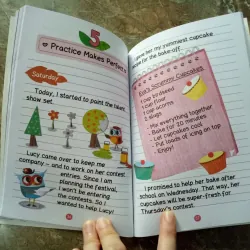 5
Practice Makes Perfect
Saturday
Today, I started to paint the talent
show set.
Lucy came over to keep me
company – and to work on her contest
entries. Since I am
planning the festival,
I won't be entering
the contests. So I
wanted to help Lucy!
gave her my yummiest cupcake
for the bake-off.
Eva's Scrummy Cupcakes
1 cup
1 cup flour
1 cup acorns
2 slugs
Mix everything together
Bake for 20 minutes
Let cupcakes cool
Put loads of icing on top
Enjoy!
I promised to help her bake after
school on Wednesday. That way, her
cupcakes will be super-fresh for
Thursday's contest.